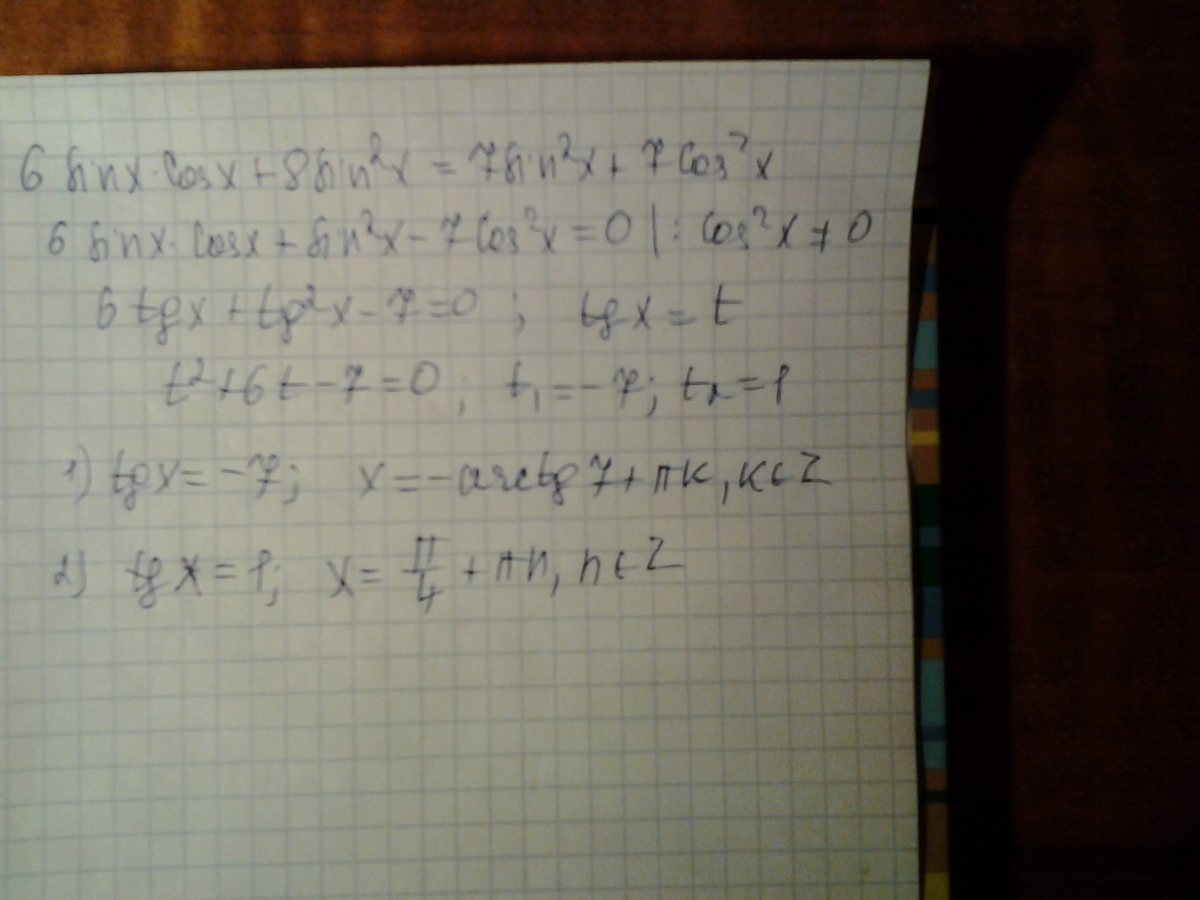 6 sinx·cosx+8sin²x = 7sin²x+7cos²x
6 sinx·cosx+sin²x-7cos²x=0 |: cos²x≠0
6tgx+tg²x-7=0 ; tgx=t
t²+6t-7=0 ; t₁=-7; t₂=1
1) tgx=-7; x=-arctg7+πk, k∈Z
2) tgx=1; x=π/4+πn, n∈Z